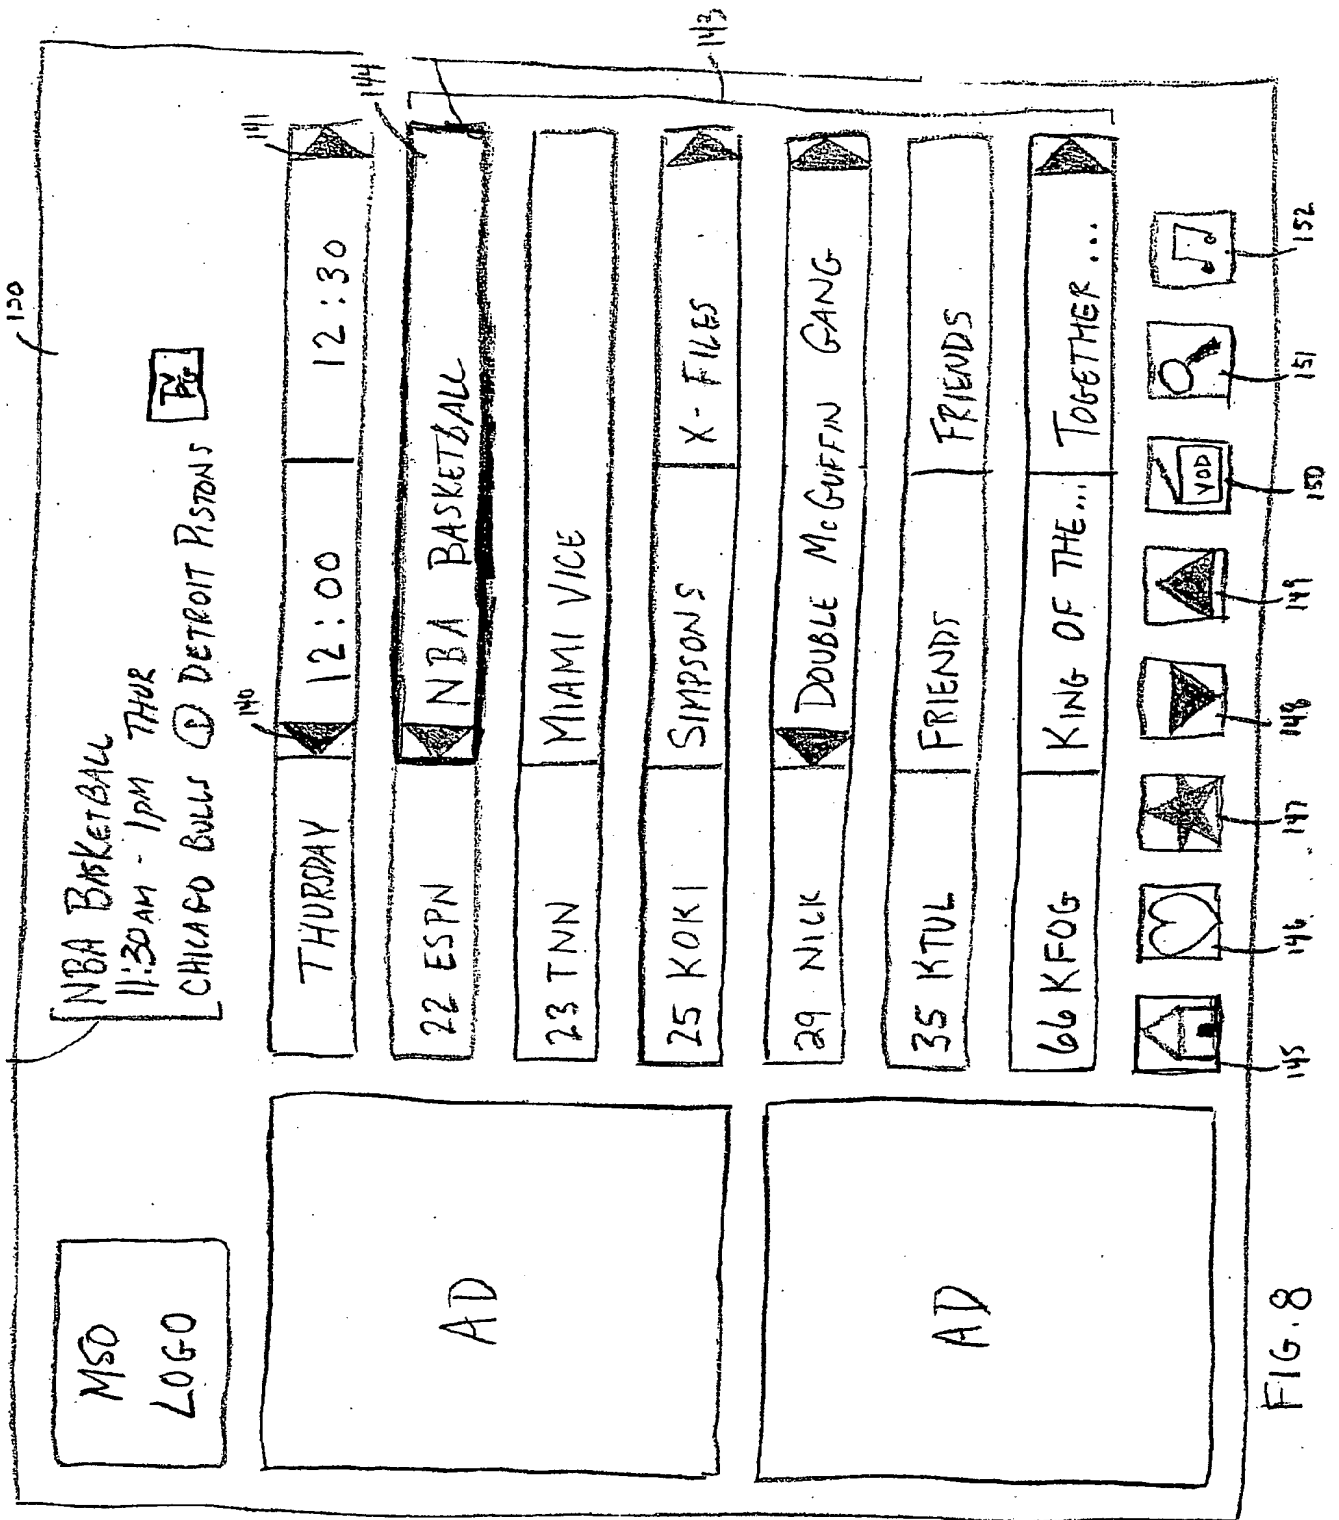 120
MSO
LOGO
NBA BASKETBALL
11:30AM - 1PM THUR
CHICAGO BULLS @ DETROIT PISTONS TV PG
140
141
THURSDAY 12:00 12:30
144
22 ESPN NBA BASKETBALL
23 TNN MIAMI VICE
25 KOKI SIMPSONS X-FILES
29 NICK DOUBLE McGUFFIN GANG
35 KTUL FRIENDS FRIENDS
66 KFOG KING OF THE... TOGETHER...
143
AD
AD
VOD
145 146 147 148 149 150 151 152
FIG. 8